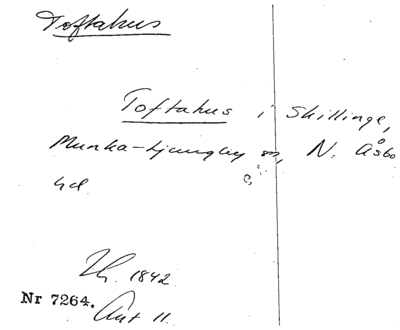 Toftahus
Toftahus i Skillinge,
Munka-Ljungby sn, N. Åsbo
hd
1842
Nr 7264.
Ant 11.